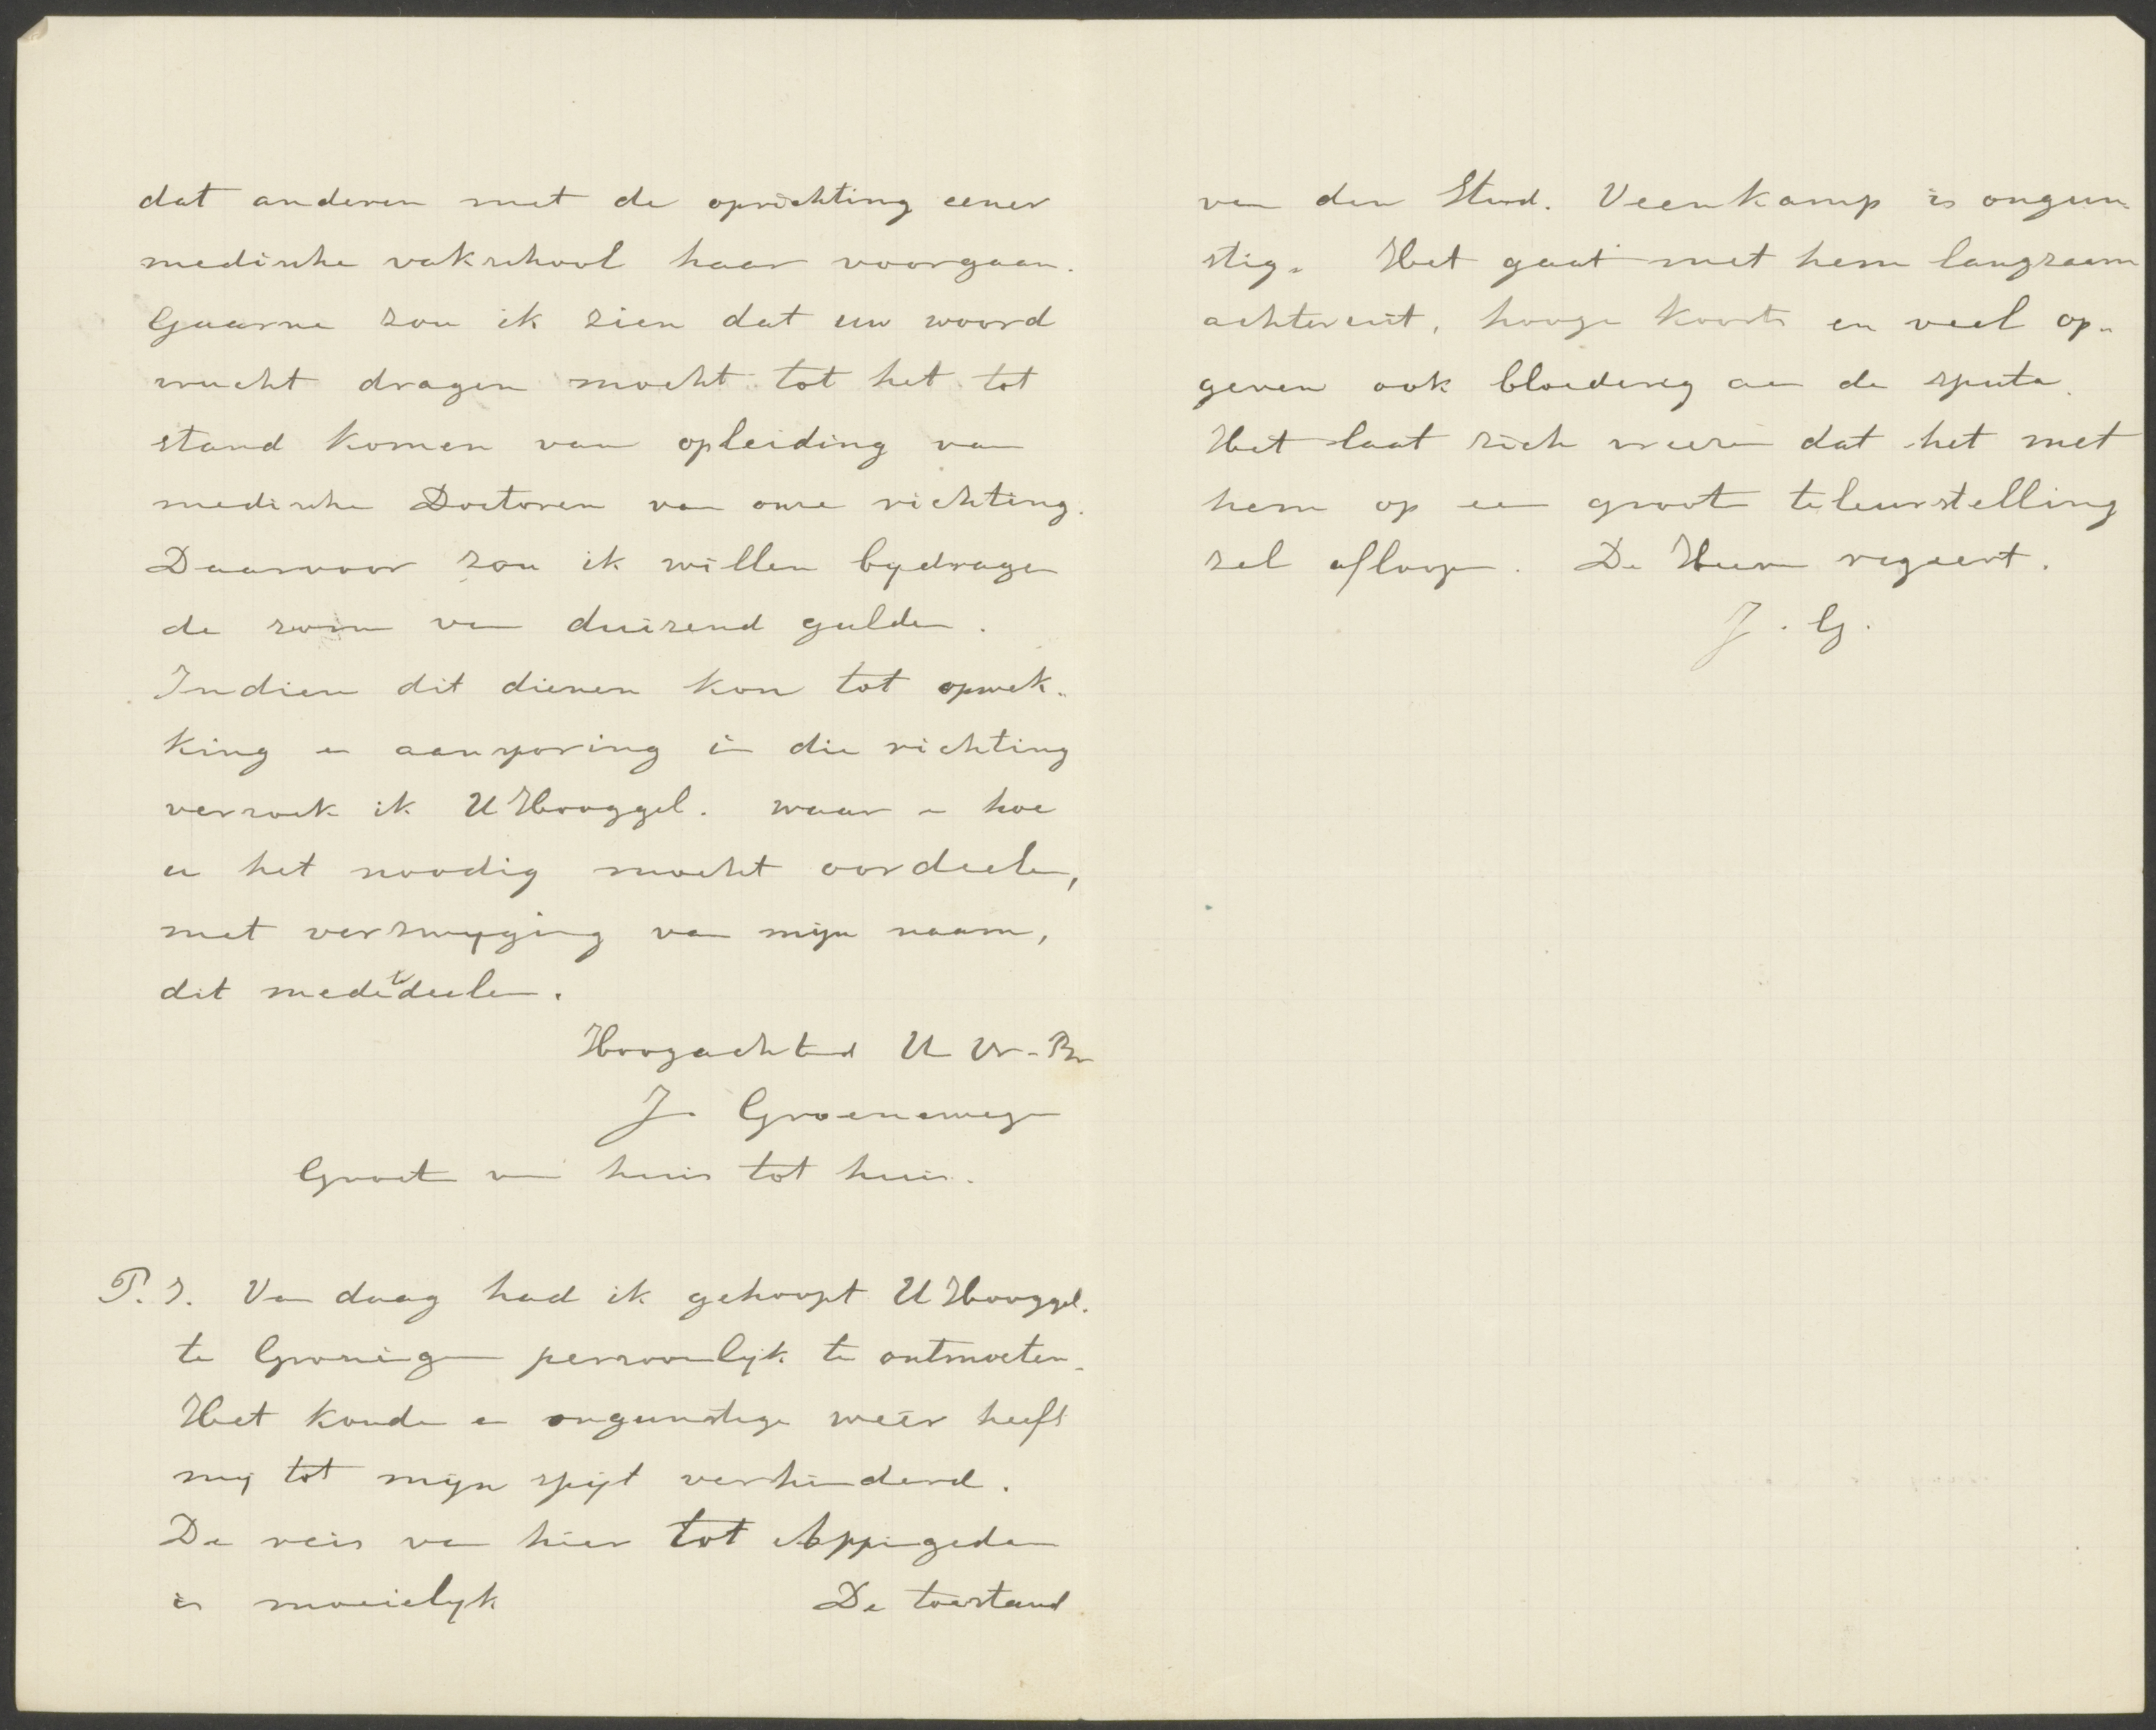 dat anderen met de oprichting eener
medische vakschool haar voorgaan.
Gaarne zou ik zien dat uw woord
vrucht dragen mocht tot het tot
stand komen van opleiding van
medische Doctoren van onze richting.
Daarvoor zou ik willen bydragen
de som van duizend gulden.
Indien dit dienen kon tot opwek-
king en aansporing in die richting
verzoek ik UHooggel. waar en hoe
u het noodig mocht oordeelen,
met verzwyging van mijn naam,
dit mede te deelen.
Hoogachtend U Dr. Br
J. Groenewegen
Groet van huis tot huis.
P. S. Van daag had ik gehoopt UHooggel.
te Groningen persoonlyk te ontmoeten.
Het koude en ongunstige weêr heeft
mij tot mijn spijt verhinderd.
De reis van hier tot Appingedam
is moeielyk De toestand
van den Stud. Veenkamp is ongun-
stig. Het gaat met hem langzaam
achteruit, hooge koorts en veel op-
geven ook bloederig aan de sputa.
Het laat zich vreezen dat het met
hem op een groote teleurstelling
zal afloopen. De Heere regeert.
J. G.